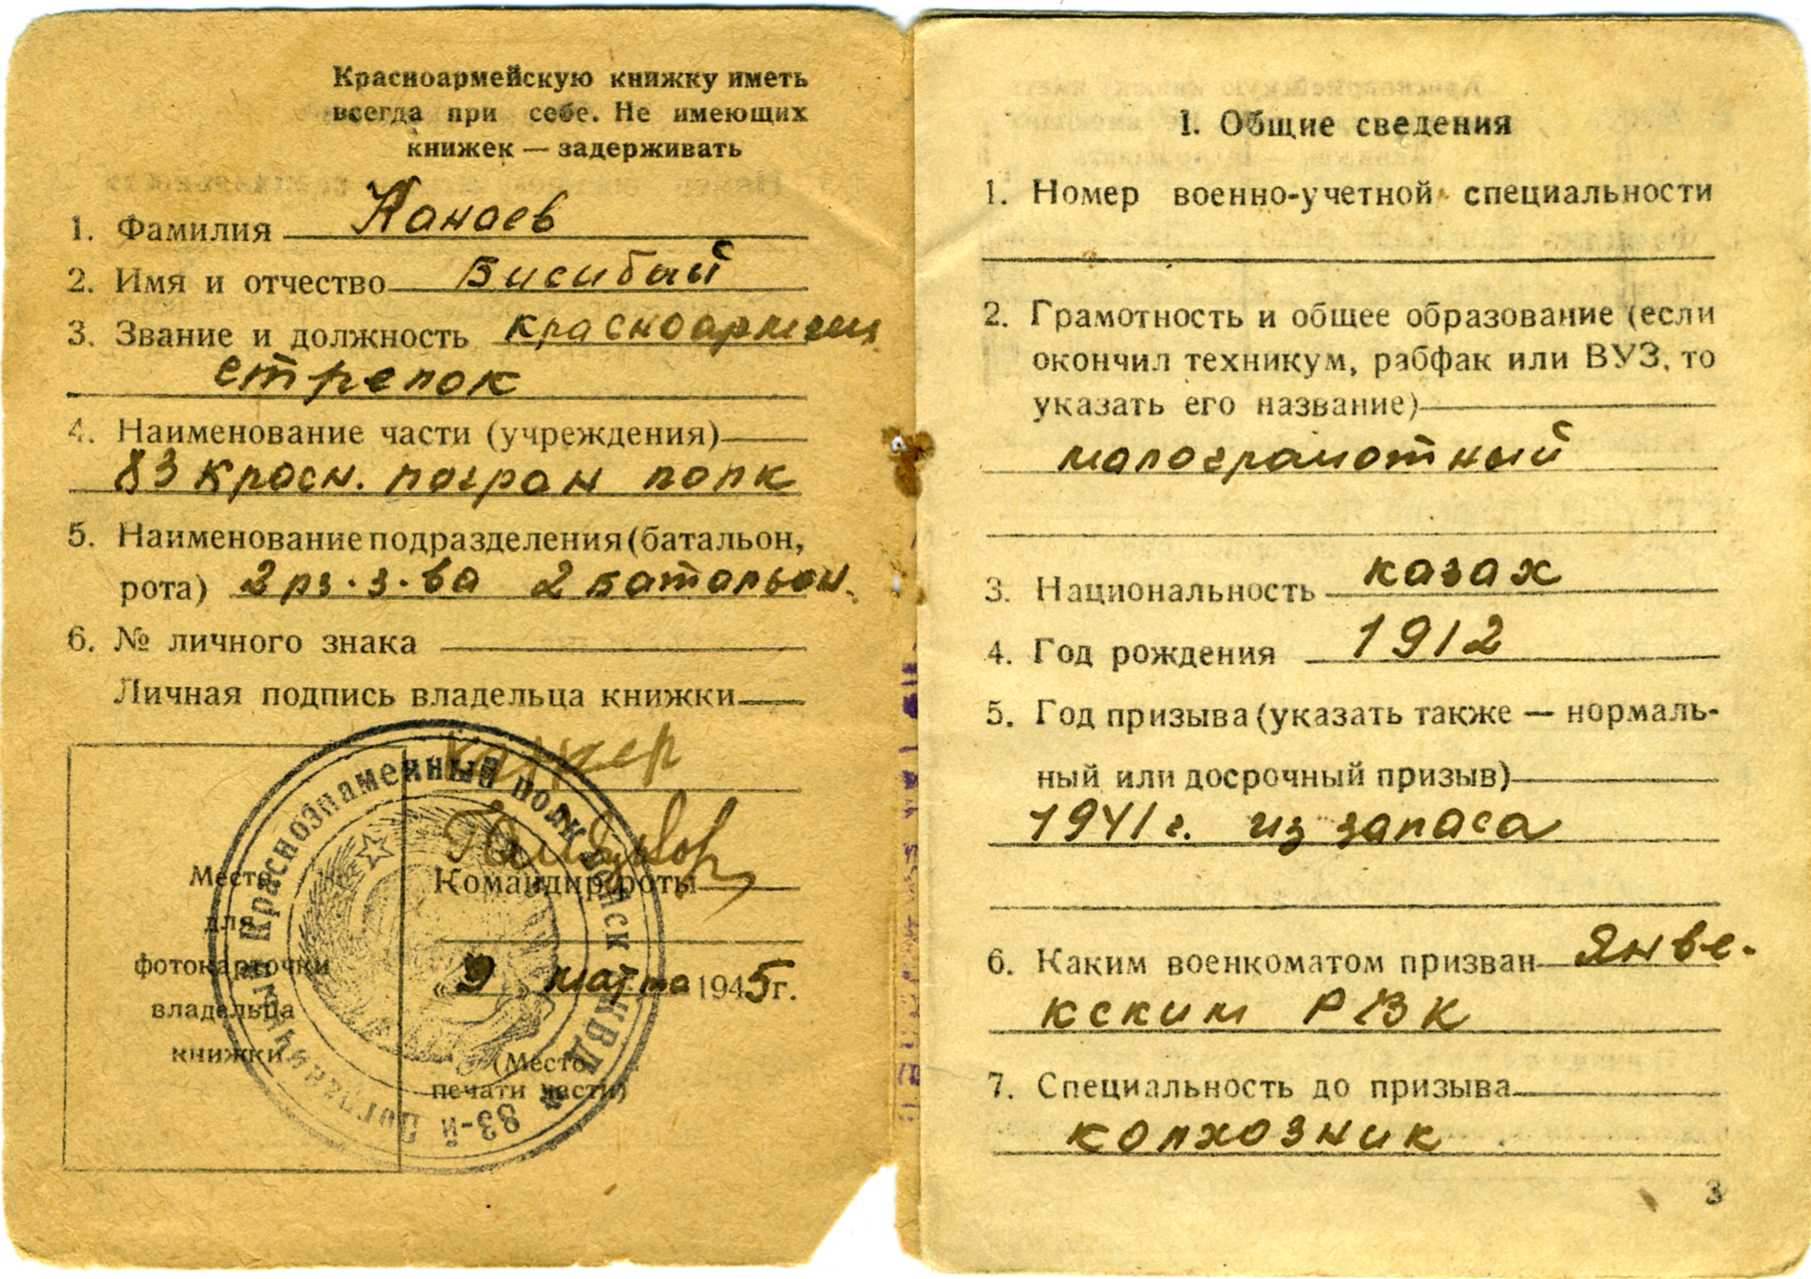 Красноармейскую книжку иметь
всегда при себе. Не имеющих
книжек — задерживать
1. Фамилия Канаев
2. Имя и отчество Бисибай
3. Звание и должность красноармеец
стрелок
4. Наименование части (учреждения)
83 Красн. погран полк
5. Наименование подразделения (батальон,
рота) 2 рз. з-ва 2 батальон.
6. № личного знака
Личная подпись владельца книжки
Командир роты
"9" марта 1945г.
Место
для
фотокарточки
владельца
книжки
(Место
печати части)
83-й Пограничный Краснознаменный полк войск НКВД
1. Общие сведения
1. Номер военно-учетной специальности
2. Грамотность и общее образование (если
окончил техникум, рабфак или ВУЗ, то
указать его название)
малограмотный
3. Национальность казах
4. Год рождения 1912
5. Год призыва (указать также — нормаль-
ный или досрочный призыв)
1941г. из запаса
6. Каким военкоматом призван Янве-
кским РВК
7. Специальность до призыва
колхозник
3